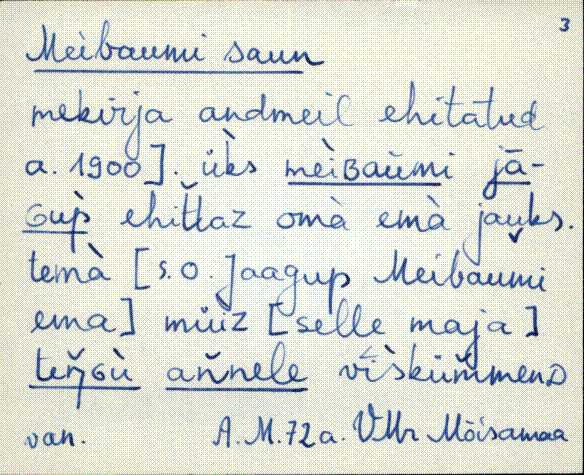 3
Meibaumi saun
mekirja andmeil ehitatud
a. 1900]. üks mèiʙaùmi jā-
ɢup̀ ehit̆taz omà emà jau̬ks.
temà [s.o. Jaagup Meibaumi
ema] müiz [selle maja]
teŋ̆ɢù aňnele vīskümmend
van. A.M. 72 a. VMr Mõisamaa